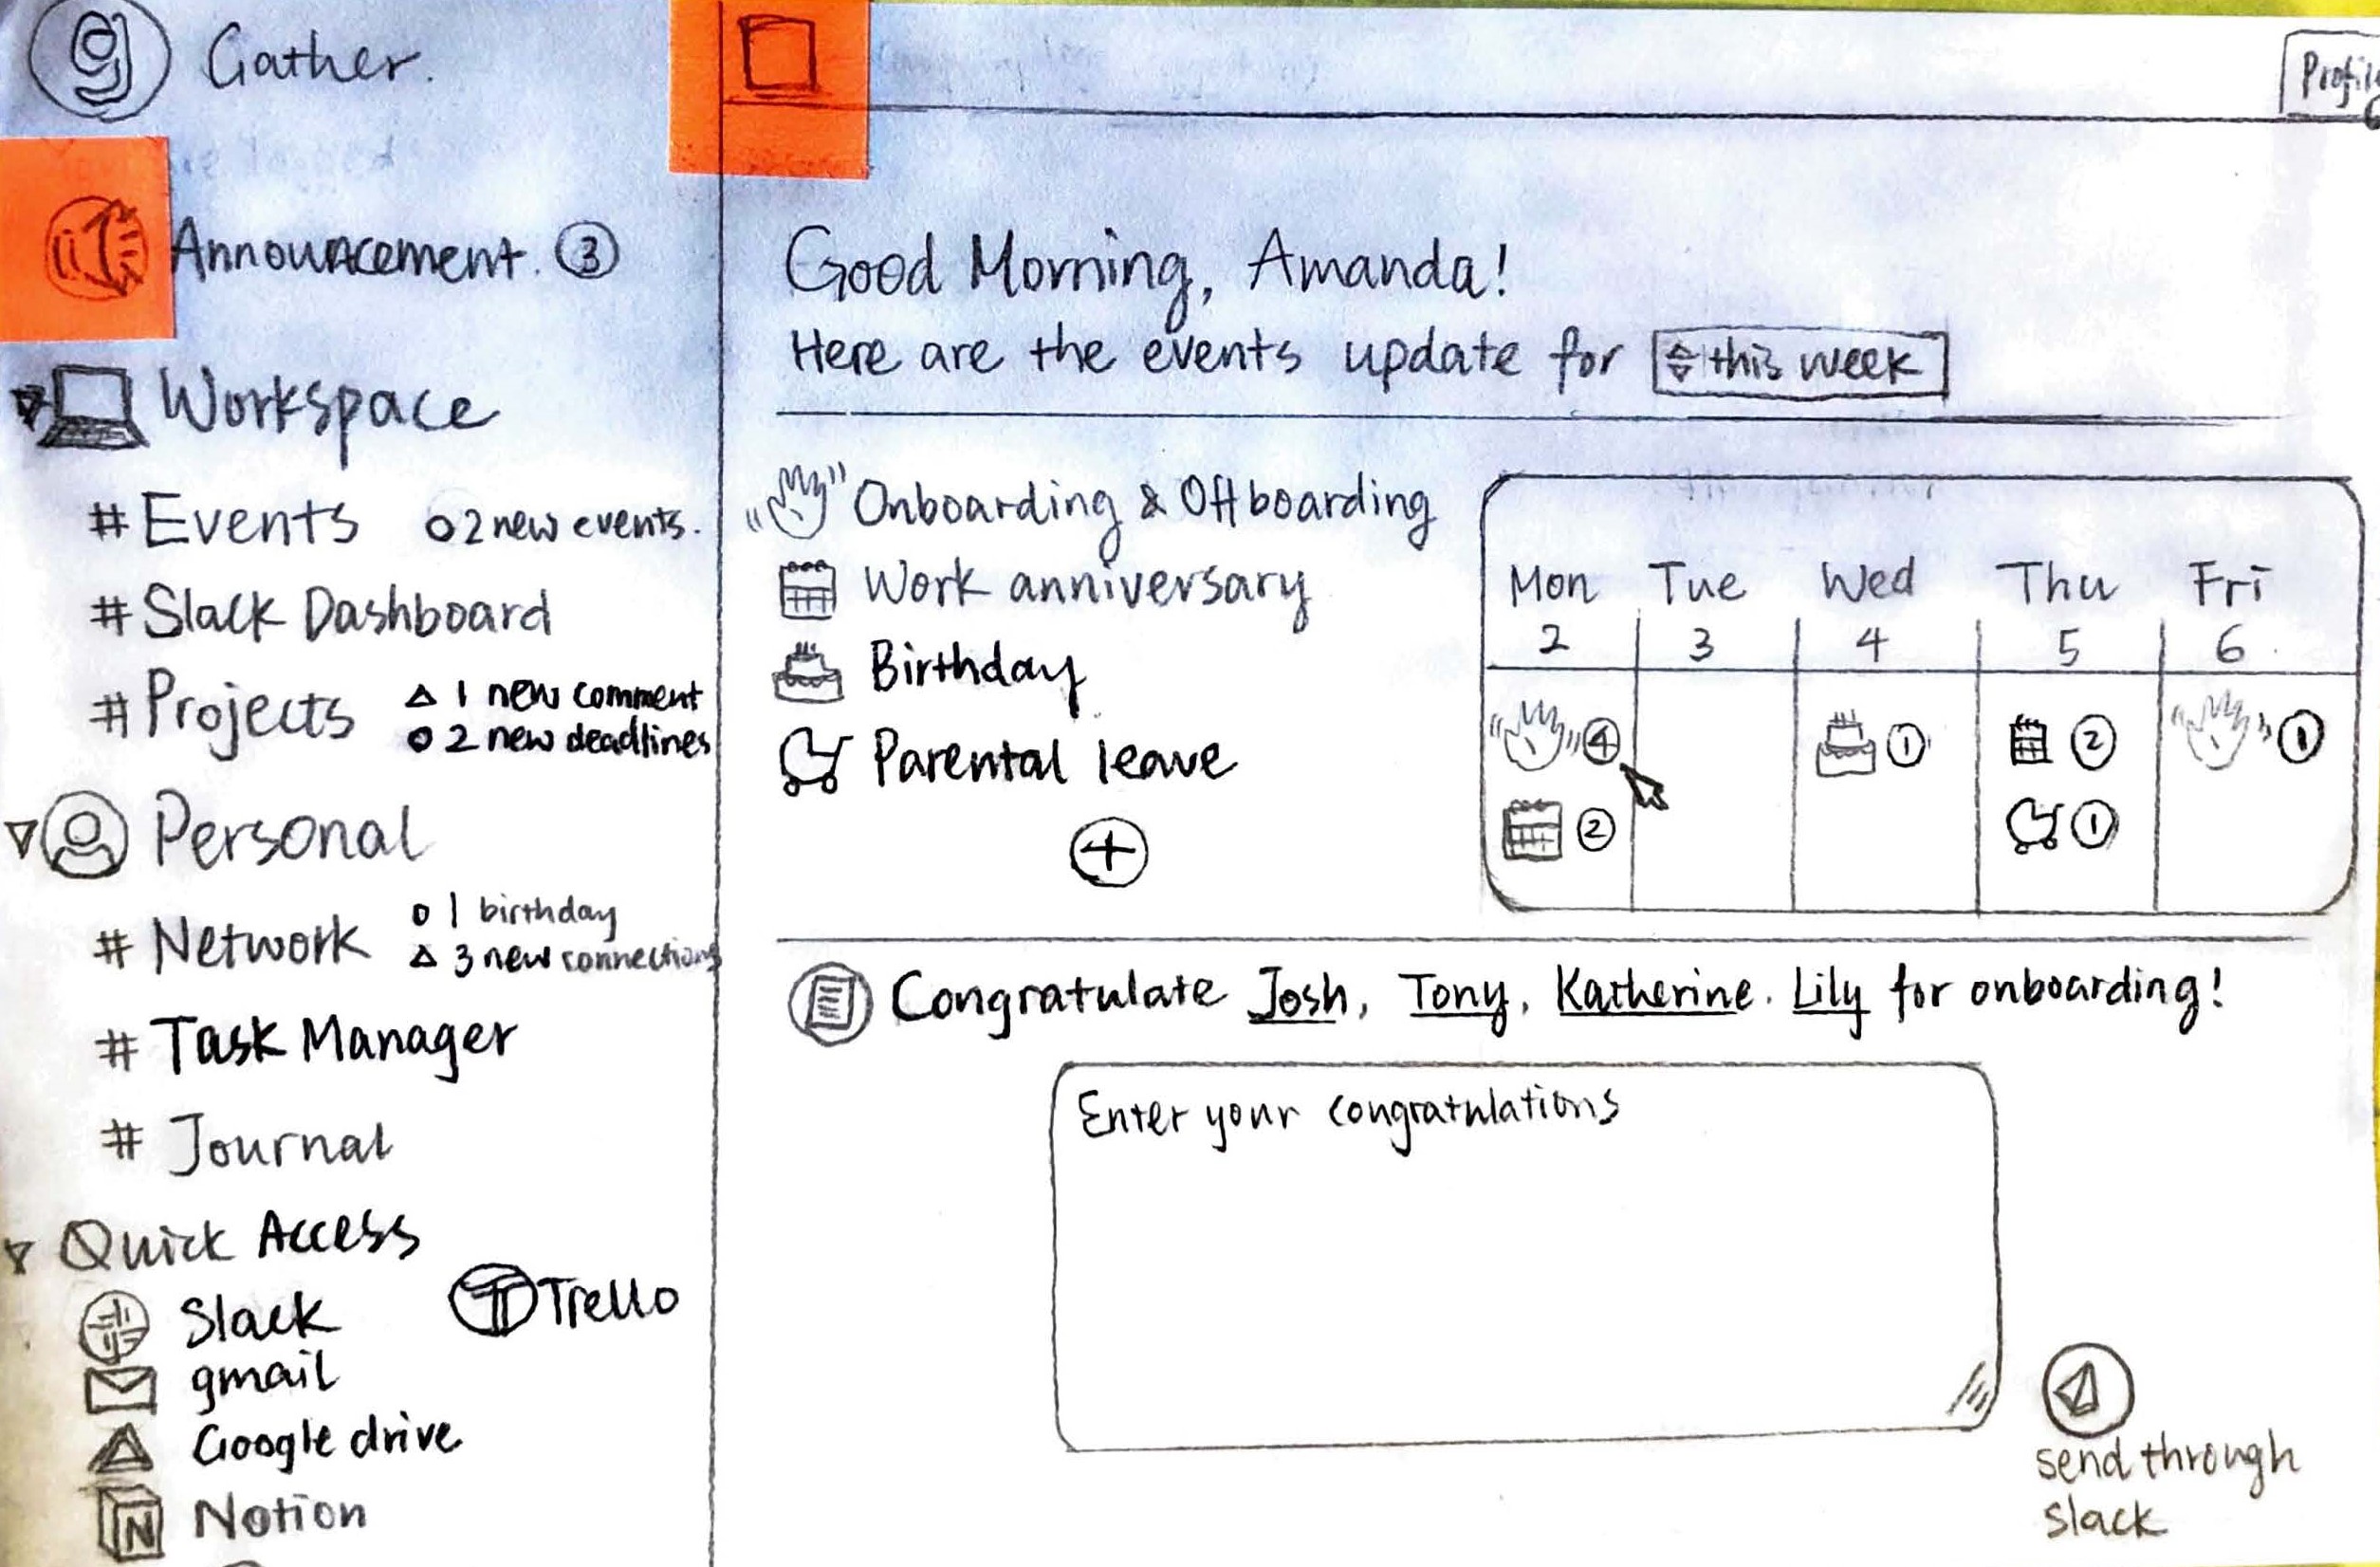 g Gather.
Profile
Announcement. 3
Workspace
# Events o 2 new events.
# Slack Dashboard
# Projects △ 1 new comment
o 2 new deadlines
Personal
# Network o 1 birthday
△ 3 new connections
# Task Manager
# Journal
Quick Access
Slack
Trello
gmail
Google drive
N Notion
Good Morning, Amanda!
Here are the events update for this week
Onboarding & Offboarding
Work anniversary
Birthday
Parental leave
+
Mon Tue Wed Thu Fri
2 3 4 5 6
4 1 2 1
2 1
Congratulate Josh, Tony, Katherine. Lily for onboarding!
Enter your congratulations
send through
slack